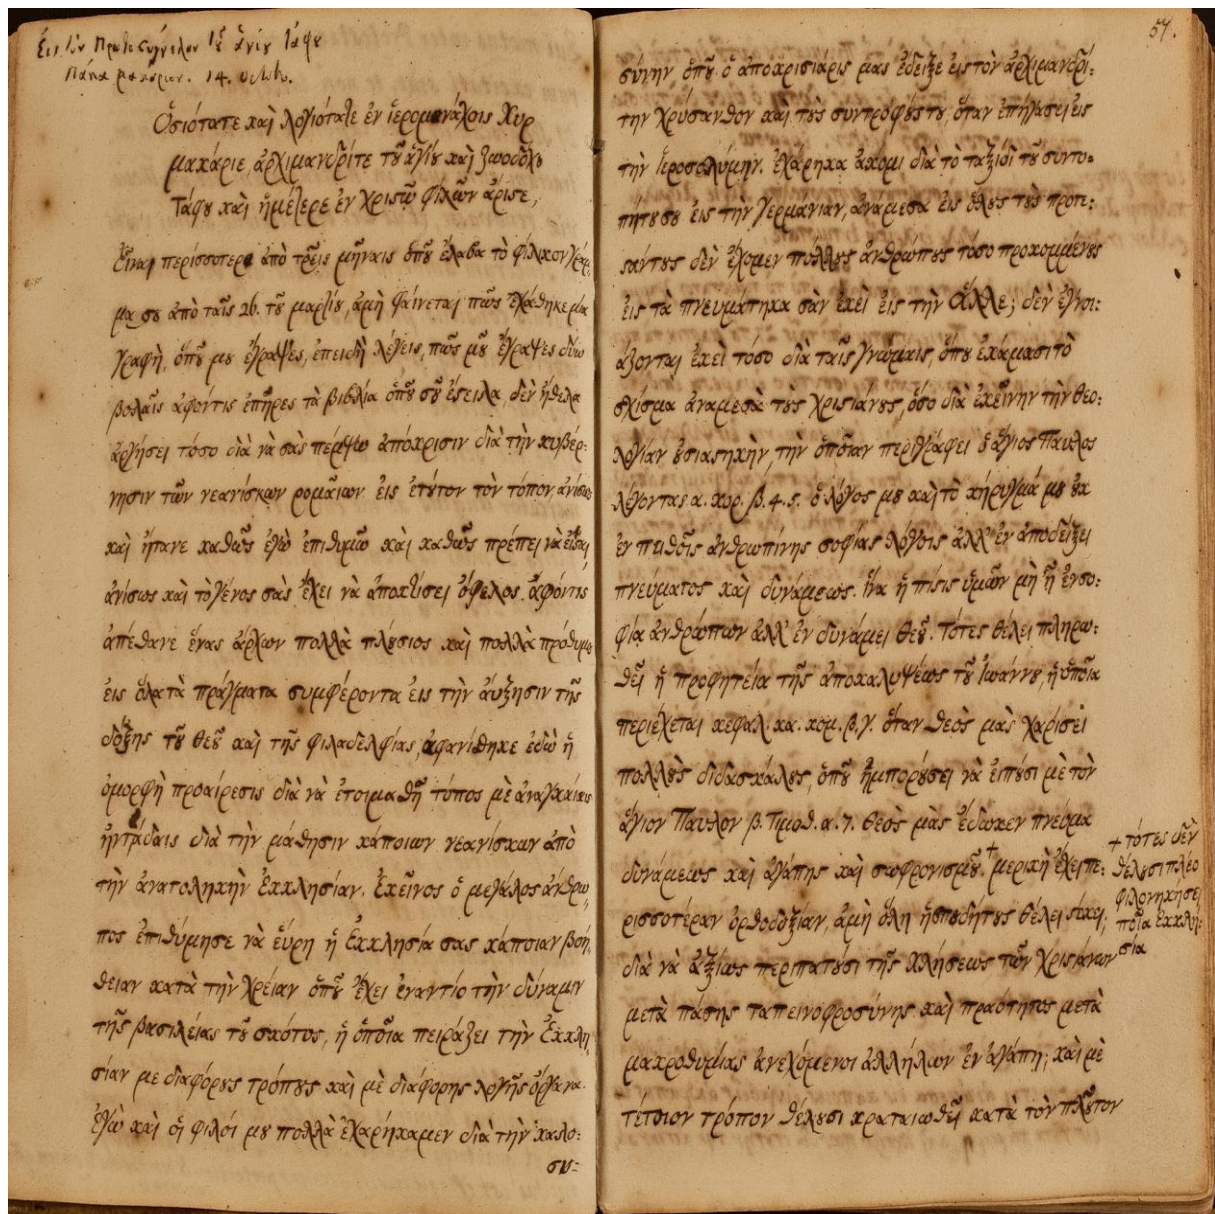 Εἰς τὸν Πρωτοσύγγελον τοῦ ἁγίου τάφου
Πάπα μακάριον. 14. octob.
Ὁσιότατε καὶ λογιότατε ἐν ἱερομονάχοις Κυρ
μακάριε, ἀρχιμανδρίτε τοῦ ἁγίου καὶ ζωοδόχου
Τάφου καὶ ἡμέτερε ἐν χριστῷ φίλων ἄριστε,
Εἶναι περίσσοτερο ἀπὸ τρεῖς μῆναις ὁποῦ ἔλαβα τὸ φίλικον γράμ
μα σου ἀπὸ ταῖς 26. τοῦ μαρτίου, ἀμὴ φαίνεται πῶς ἐχάθηκε μία
γραφὴ, ὁποῦ μου ἔγραψες, ἐπειδὴ λέγεις, πῶς μοῦ ἔγραψες δύω
βολαῖς ἀφόντις ἐπῆρες τὰ βιβλία ὁποῦ σοῦ ἔστειλα, δὲν ἤθελα
ἀργήσει τόσο διὰ νὰ σὰς πέμψω ἀπόκρισιν διὰ τὴν κυβέρ:
νησιν τῶν νεανίσκων ρομαίων εἰς ἐτοῦτον τὸν τόπον ἀνίσως
καὶ ἤτανε καθῶς ἐγὼ ἐπιθυμῶ καὶ καθῶς πρέπει νὰ εἶσαι
ἀνίσως καὶ τὸ γένος σὰς ἔχει νὰ ἀποκτίσει ὄφελος. ἀφόντις
ἀπέθανε ἕνας ἄρχων πολλὰ πλούσιος καὶ πολλὰ πρόθυμος
εἰς ὅλα τὰ πράγματα συμφέροντα εἰς τὴν ἄυξησιν τῆς
δόξης τοῦ θεοῦ καὶ τῆς φιλαδελφίας, ἀφανίσθηκε ἐδὼ ἡ
ὀμορφὴ προαίρεσις διὰ νὰ ἑτοιμασθῆ τόπος μὲ ἀναγκαίαις
ἠντράδαις διὰ τὴν μάθησιν κάποιων νεανίσκων ἀπὸ
τὴν ἀνατοληκὴν Ἐκκλησίαν. Ἐκεῖνος ὁ μεγάλος ἄνθρω
πος ἐπιθύμησε νὰ εὕρη ἡ Ἐκκλησία σας κάποιαν βοή,
θειαν κατὰ τὴν χρείαν ὁποῦ ἔχει ἐναντίο τὴν δύναμιν
τῆς βασιλείας τοῦ σκότους, ἡ ὁποῖα πειράζει τὴν Ἐκκλη
σίαν με διαφόρους τρόπους καὶ μὲ διάφορης λογῆς ὄργανα.
ἐγὼ καὶ οἱ φιλόι μου πολλὰ ἐχαρήκαμεν διὰ τὴν καλο:
συ:
57.
σύνην ὁποῦ ὁ ἀποκρισιάρις μας ἔδειξε εἰς τὸν ἀρχιμανδρί:
την χρύσανθον καὶ τοὺς συντρόφους του, ὅταν ἐπήγασει εἰς
τὴν Ἱεροσολύμην. ἐχάρηκα ἀκόμι διὰ τὸ ταξίδι τοῦ συντο:
πήτου σου εἰς τὴν γερμανίαν, ἀνάμεσα εἰς ὅλους τοὺς προτε:
σάντους δὲν ἔχομεν πόλλους ἀνθρώπους τόσο προκομμένους
εἰς τὰ πνευμάτηκα σὰν ἐκεὶ εἰς τὴν Ἄλλε; δὲν ἐγνοι:
άζονται ἐκεὶ τόσο διὰ ταῖς γνώμαις, ὁποῦ ἐκάμασι τὸ
σχίσμα ἀναμεσὰ τοὺς χριστιάνους, ὅσο διὰ ἐκείνην τὴν θεο:
λογίαν οὐσιαστηκὴν, τὴν ὁποῖαν περιγράφει ὁ ἅγιος Παυλος
λέγοντας α. κορ. β. 4. 5. ὁ λόγος μου καὶ τὸ κήρυγμά μου οὐκ
ἐν πειθοῖς ἀνθρωπίνης σοφίας λόγοις ἀλλ' ἐν ἀποδείξει
πνεύματος καὶ δυνάμεως. ἵνα ἡ πίστις ὑμῶν μὴ ᾖ ἐν σο:
φίᾳ ἀνθρώπων ἀλλ' ἐν δυνάμει θεοῦ. τότες θέλει πληρω:
θεῖ ἡ προφητεία τῆς ἀποκαλυψέως τοῦ Ἰωάννου, ἡ ὁποῖα
περιέχεται κεφαλ. κα. κομ. β. γ. ὅταν θεὸς μὰς χαρίσει
πολλοὺς διδασκάλους, ὁποῦ ἠμπορούσει νὰ εἰποῦσι μὲ τὸν
ἅγιον Παυλον β. Τιμοθ. α. 7. θεὸς μὰς ἔδωκεν πνεῦμα
δυνάμεως καὶ ἀγάπης καὶ σωφρονισμοῦ.+ μερικὴ ἔχει πε:
ρισσοτέραν ὀρθοδοξίαν, ἀμὴ ὅλη ἡ σπουδήτους θέλει στέκει,
διὰ νὰ ἀξίως περιπατοῦσι τῆς κλήσεως τῶν χριστιάνων
μετὰ πάσης ταπεινοφροσύνης καὶ πραότητος μετὰ
μακροθυμίας ἀνεχόμενοι ἀλλήλων ἐν ἀγάπη; καὶ μὲ
τέτοιον τρόπον θέλουσι κραταιωθεῖ κατὰ τὸν πλοῦτον
+ τότες δὲν
θέλουσι πλέο
φιλονηκήσει
ποῖα ἐκκλη:
σία